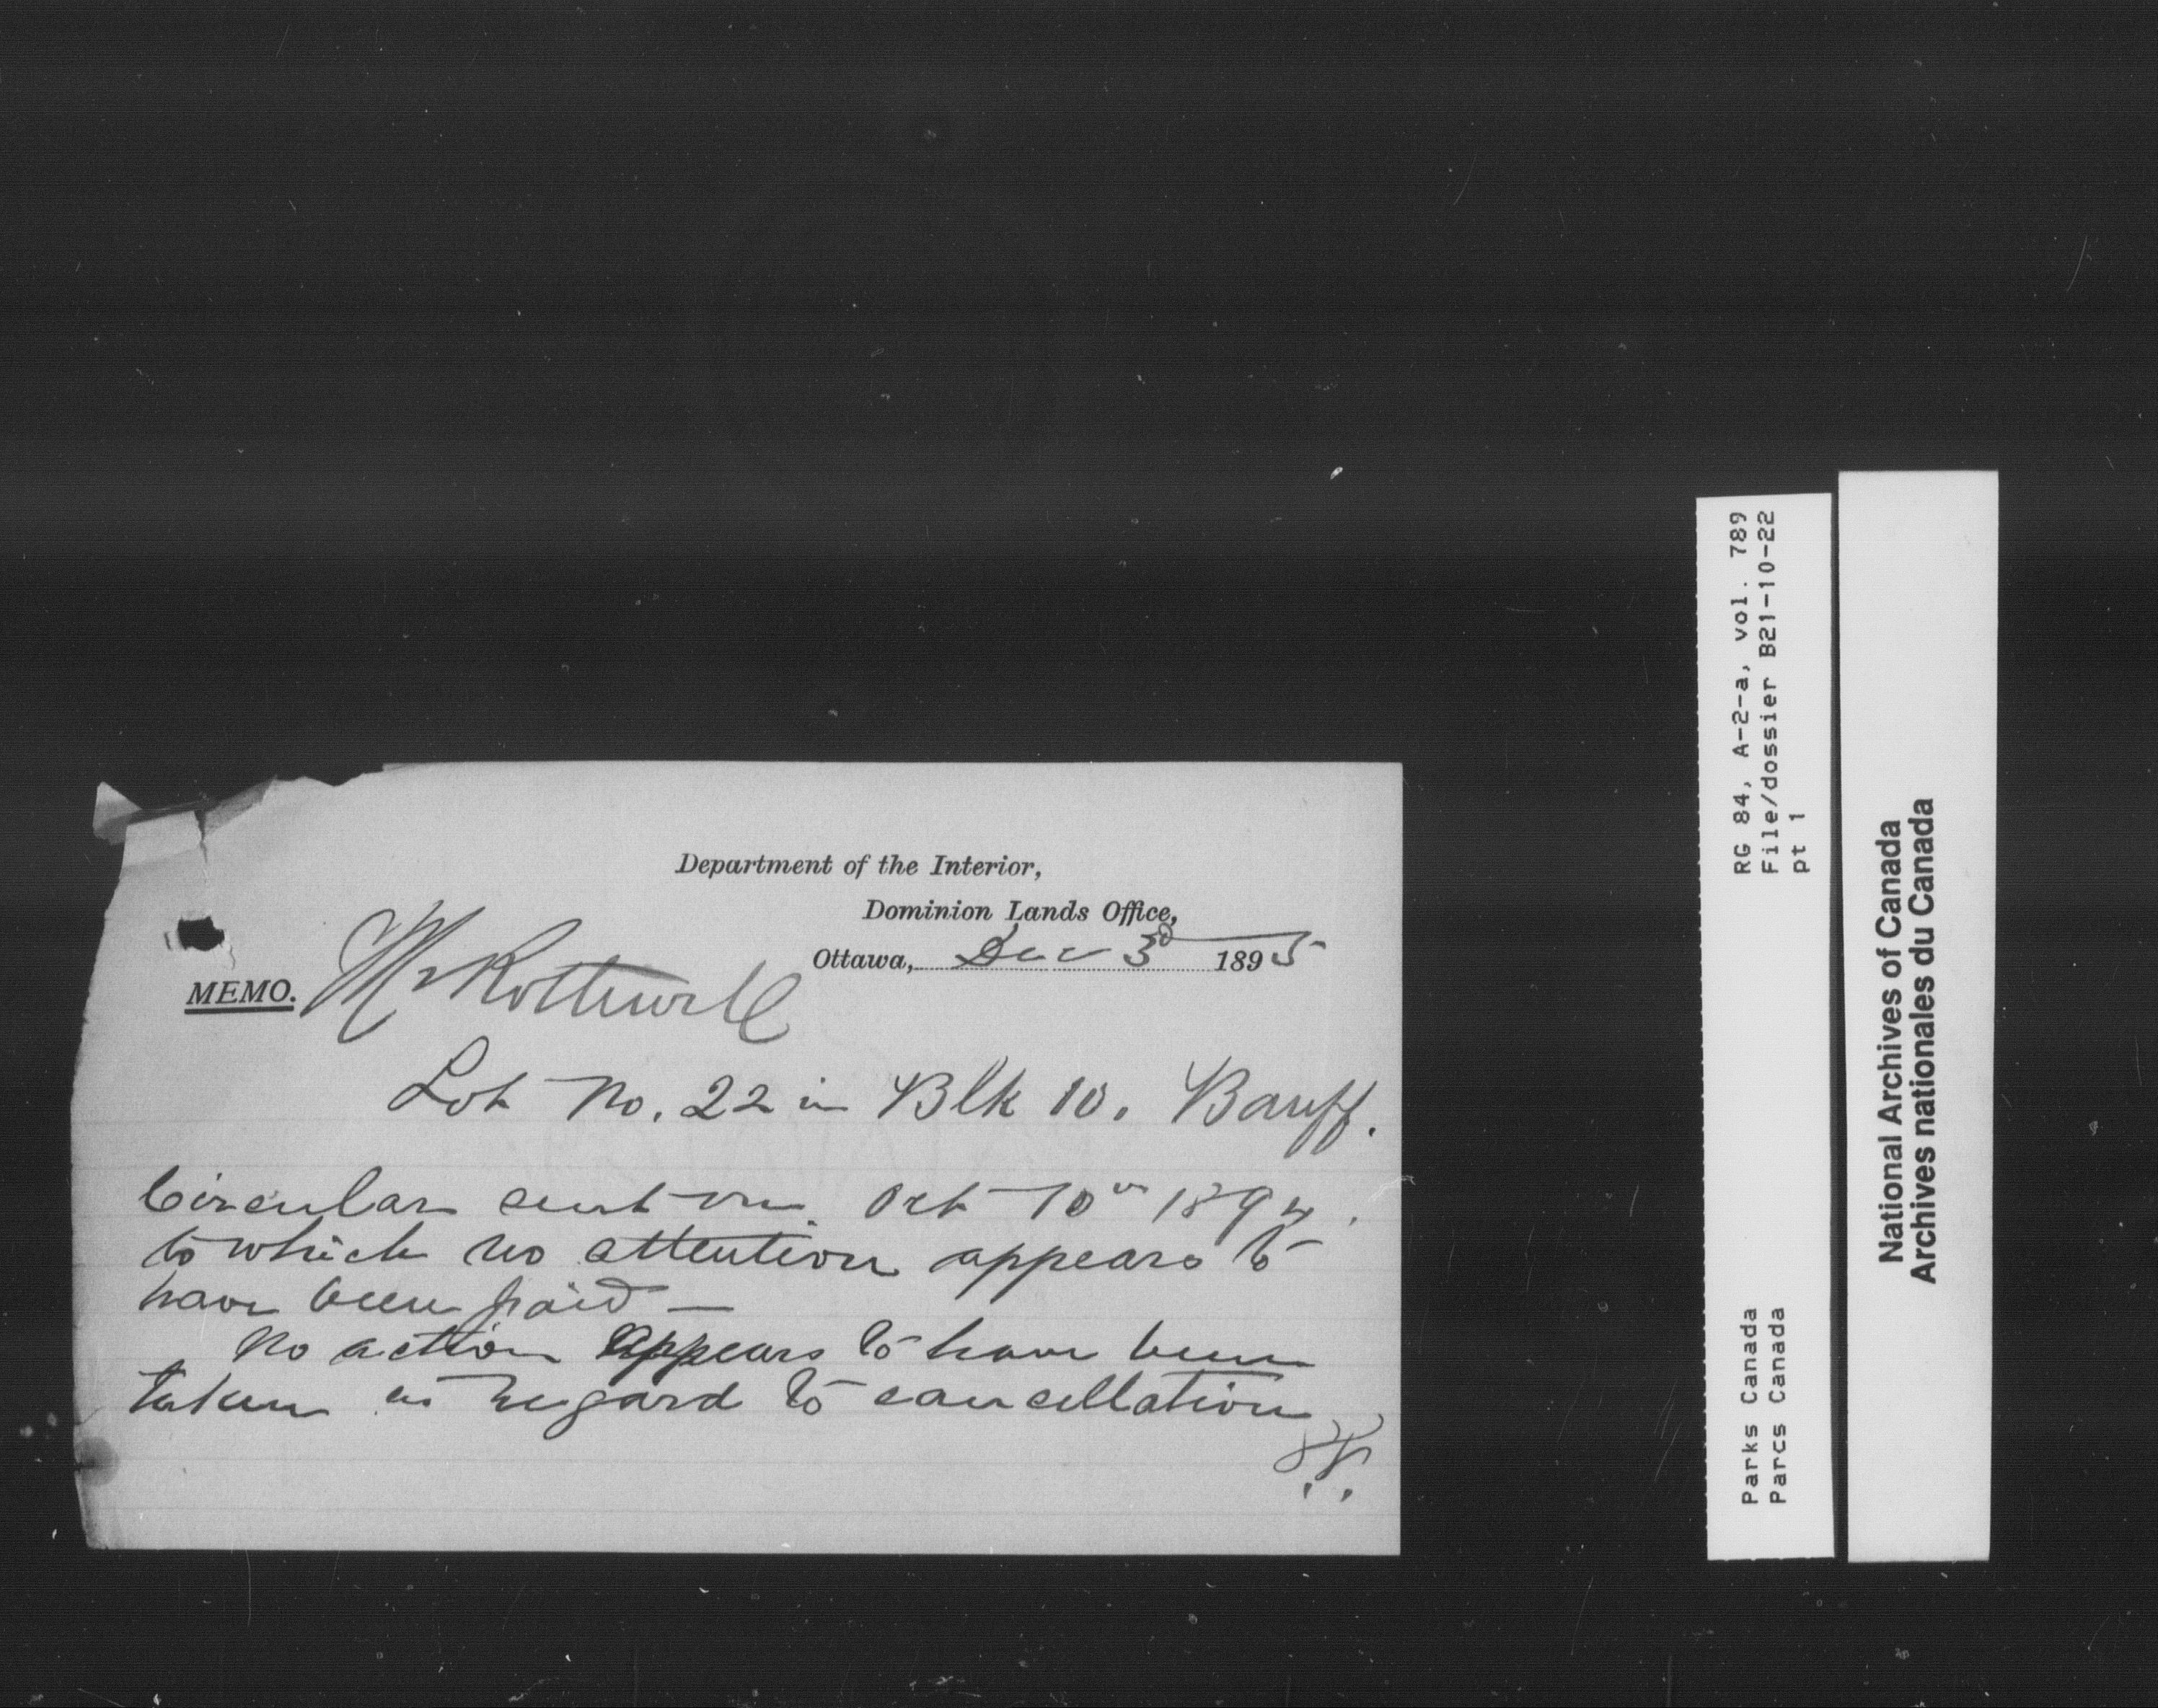 Department of the Interior,
Dominion Lands Office,
Ottawa, Dec 3d 1895
MEMO. Mr Rothwell
Lot No. 22 in Blk 10. Banff.
Circular sent on Oct 10th 1894.
to which no attention appears to
have been paid —
No action appears to have been
taken in regard to cancellation
RG 84, A-2-a, vol. 789
File/dossier B21-10-22
pt 1
Parks Canada
Parcs Canada
National Archives of Canada
Archives nationales du Canada